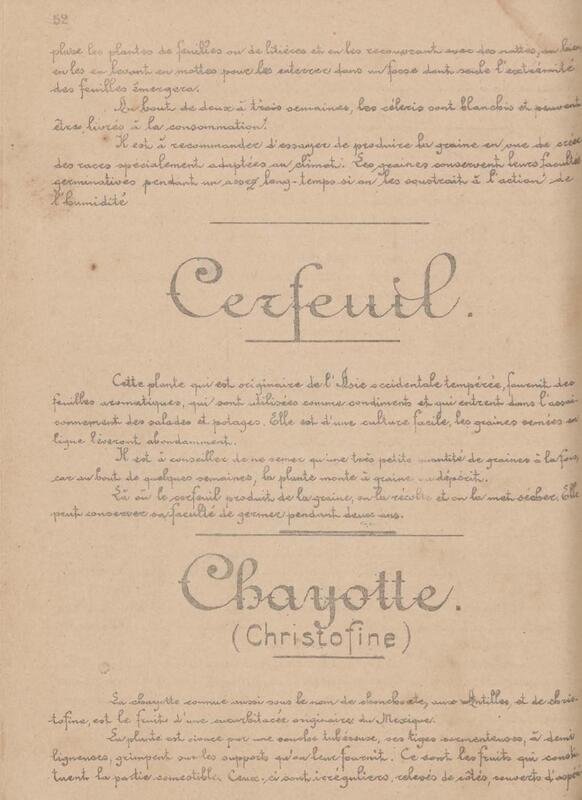 52
pluse les plantes de feuilles ou de litières et en les recouvrant avec des nattes, ou bien
en les en levant en mottes pour les enterrer dans un fosse dont seule l'extrémité
des feuilles émergera.
Au bout de deux à trois semaines, les céleris sont blanchis et peuvent
être livrés à la consommation.
Il est à recommander d'essayer de produire la graine en vue de créer
des races spécialement adaptées au climat. Les graines conservent leurs facultés
germinatives pendant un assez long-temps si on les soustrait à l'action de
l'humidité
Cerfeuil.
Cette plante qui est originaire de l'Asie occidentale tempérée, fournit des
feuilles aromatiques, qui sont utilisées comme condiments et qui entrent dans l'assai-
connement des salades et potages. Elle est d'une culture facile, les graines semées en
ligne lèveront abondamment.
Il est à conseiller de ne semer qu'une très petite quantité de graines à la fois,
car au bout de quelques semaines, la plante monte à graine ou dépérit.
Là où le cerfeuil produit de la graine, on la récolte et on la met sécher. Elle
peut conserver sa faculté de germer pendant deux ans.
Chayotte.
(Christofine)
La chayotte connue aussi sous le nom de chouchoute, aux Antilles, et de chris-
tofine, est le fruits d'une cucurbitacée originaire du Mexique.
La plante est vivace par une souche tubéreuse, ses tiges sarmenteuses, à demi
ligneuses, grimpent sur les supports qu'on leur fournit. Ce sont les fruits qui consti-
tuent la partie comestible. Ceux-ci sont irréguliers, relevés de côtés, couverts d'aspé